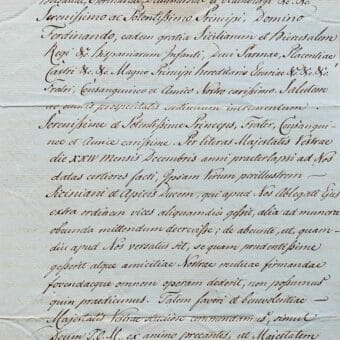 Serenissimo ac Potentissimo Principi, Domino
Ferdinando, eadem gratia Siciliarum et Hierusalem
Regi &c. Hispaniarum Infanti, Duci Parmae, Placentiae
Castri &c. &c. Magno Principi hereditario Etruriae &c. &c. &c.
Fratri, Consanguineo et Amico Nostro carissimo. Salutem
ac omnis prosperitatis continuum incrementum.
Serenissime et Potentissime Princeps, Frater, Consangui-
nee et Amice carissime. Per literas Majestatis Vestrae
die XXIV mensis Decembris anni praeterlapsi ad Nos
datas certiores facti, Ipsam Virum perillustrem
Siciniani et Apicis Ducem, qui apud Nos Ablegati Ejus
extra ordinem vices aliquamdiu gessit, alia ad munera
obeunda mittendum decrevisse; de abeunte, ut, quam-
diu apud Nos versatus sit, se quam prudentissime
gesserit atque amicitiae Nostrae mutuae firmandae
fovendaeque omnem operam dederit, non possumus
quin praedicemus. Talem favori et benevolentiae
Majestatis Vestrae studiose commendamus, simul
Deum T.O.M. ex animo precantes, ut Majestatem